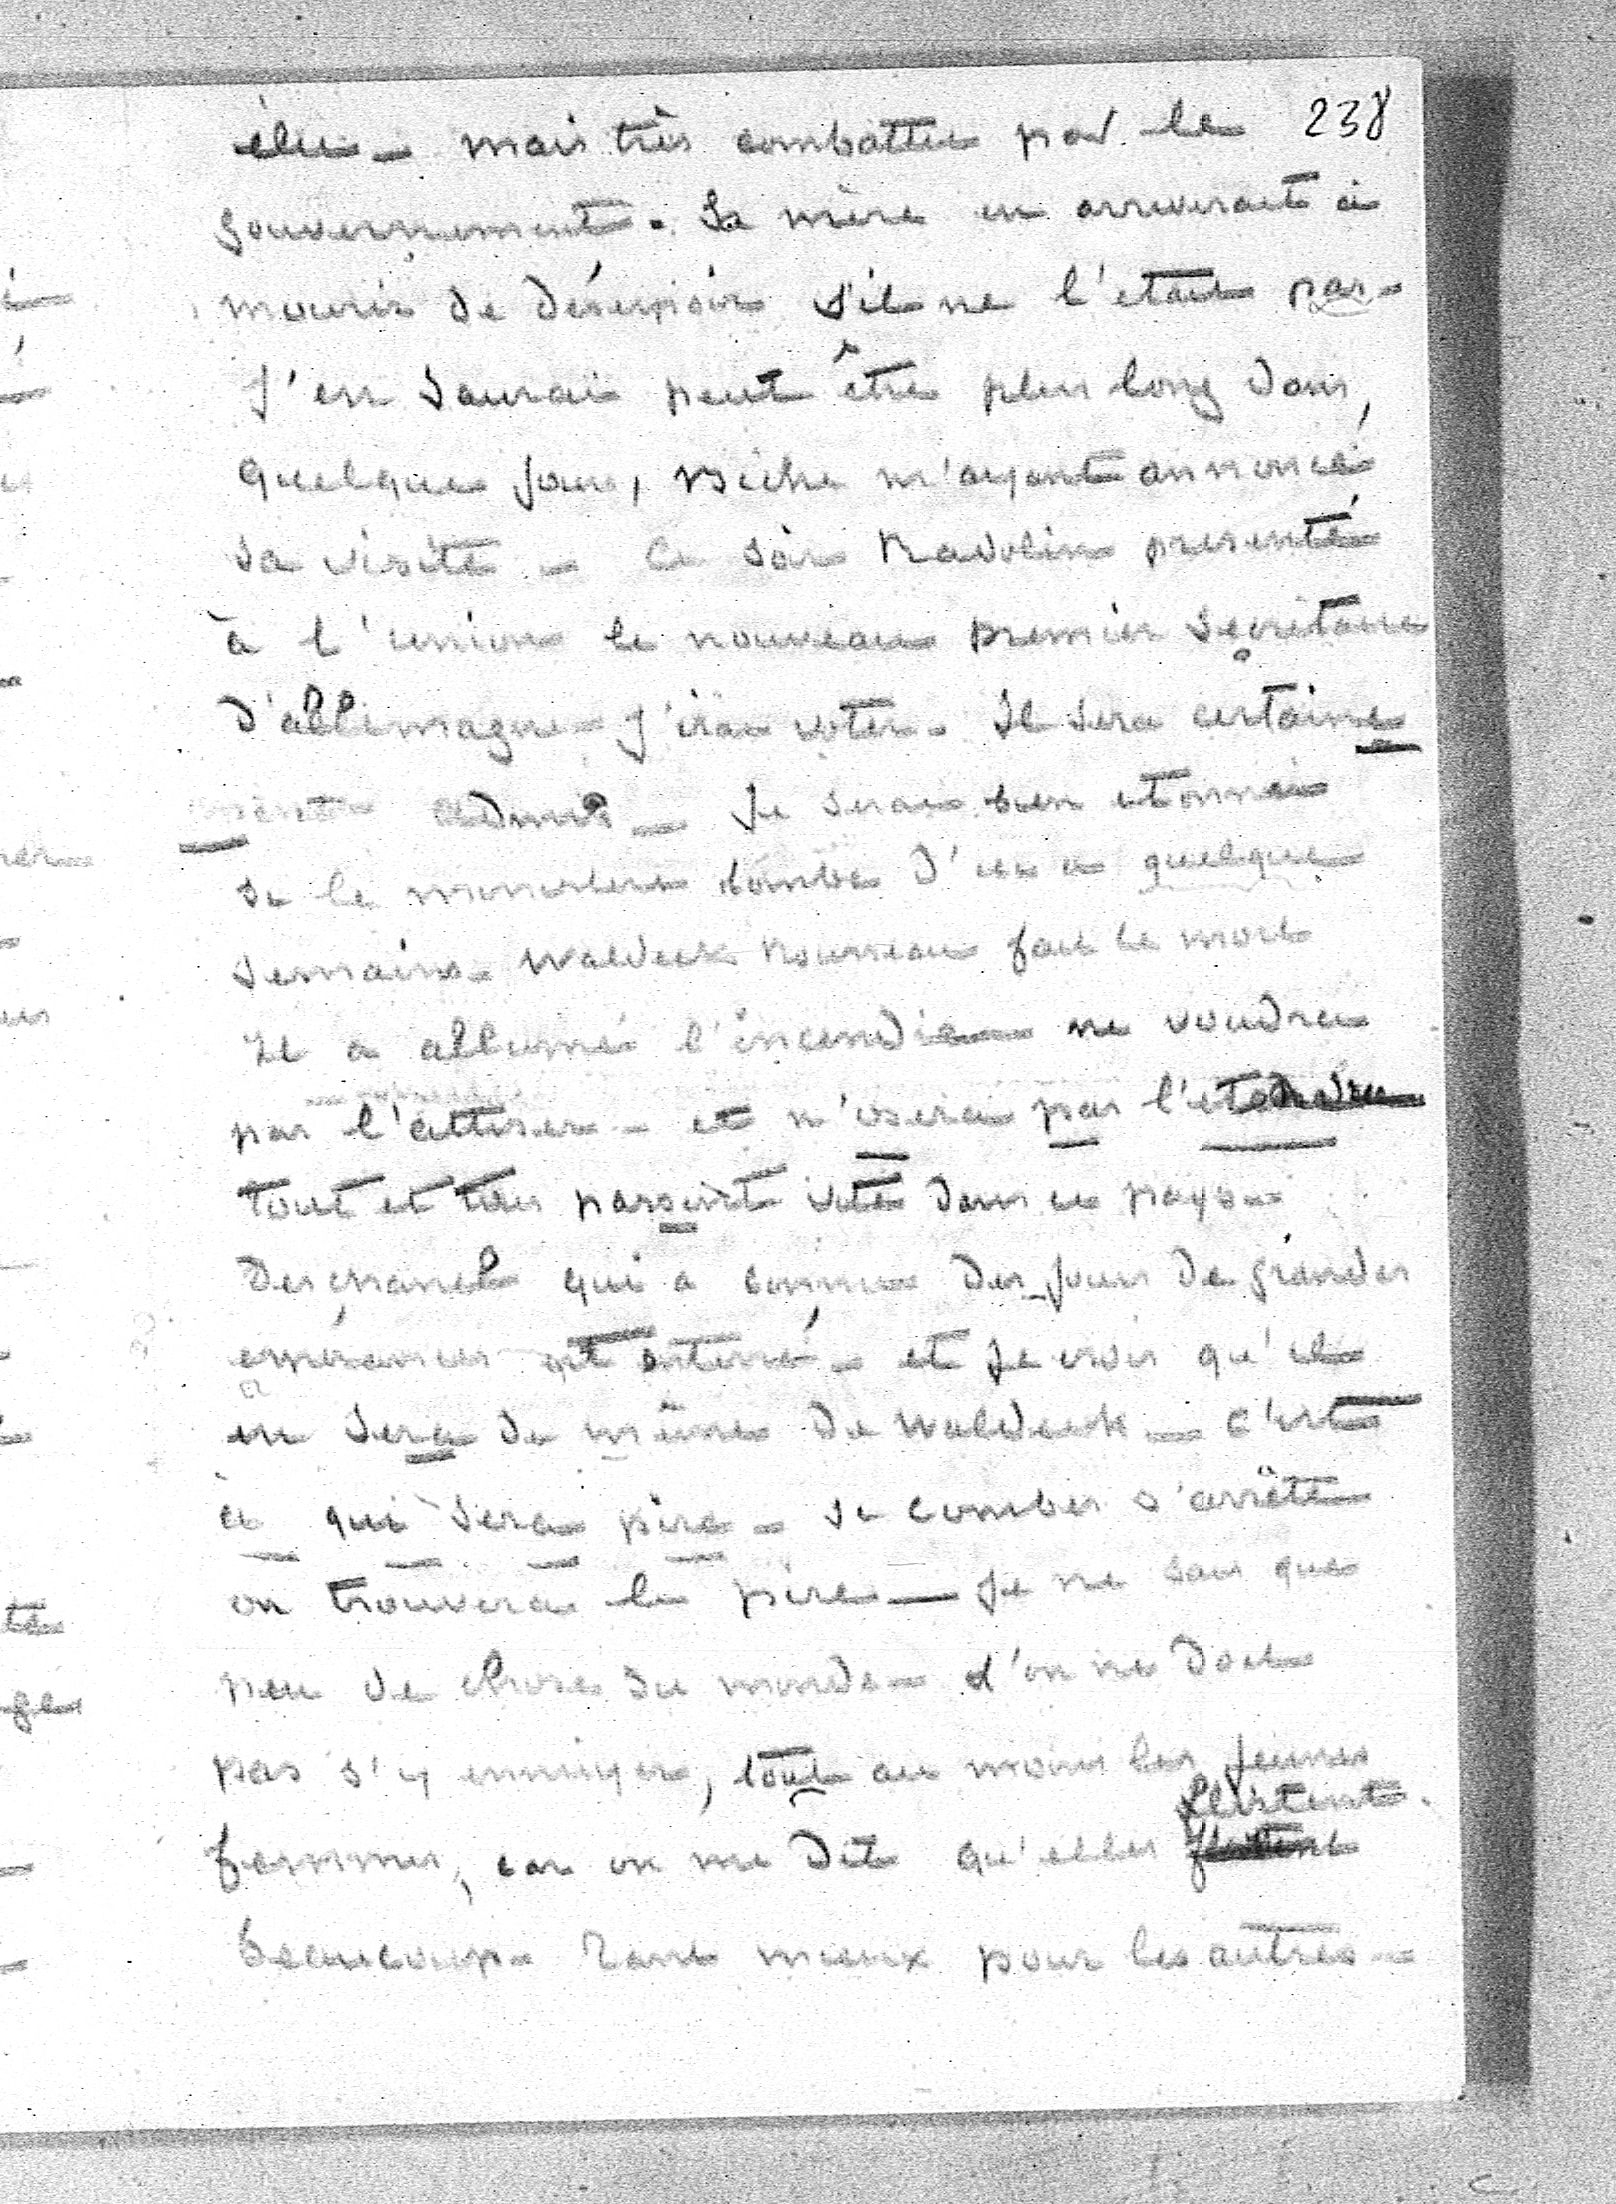 238
élu - mais très combattu par le
gouvernement. Sa mère en arriverait à
mourir de désespoir s'il ne l'était pas.
J'en saurai peut être plus long dans
quelques jours, Biche m'ayant annoncé
sa visite - Ce soir Radolin présente
à l'union le nouveau premier secrétaire
d'allemagne - J'irai voter. Il sera certaine
ment admis - Je serai bien etonné
si le ministère tombe d'ici a quelque
semaine. Waldeck Rousseau fait le mort
Il a allumé l'incendie ne voudra
pas l'attiser - et n'osera pas l'eteindre
tout et tous passent vite dans ce pays -
Deschanel qui a connu des jours de grandes
espérances est enterré - et je crois qu'il
en sera de même de Waldeck - c'est
à qui sera pire - si Combes s'arrête
on trouvera le pire - Je ne sais que
peu de chose du monde - l'on ne doit
pas s'y ennuyer, tout au moins les jeunes
femmes, car on me dit qu'elles flirtent
beaucoup. Tant mieux pour les autres -